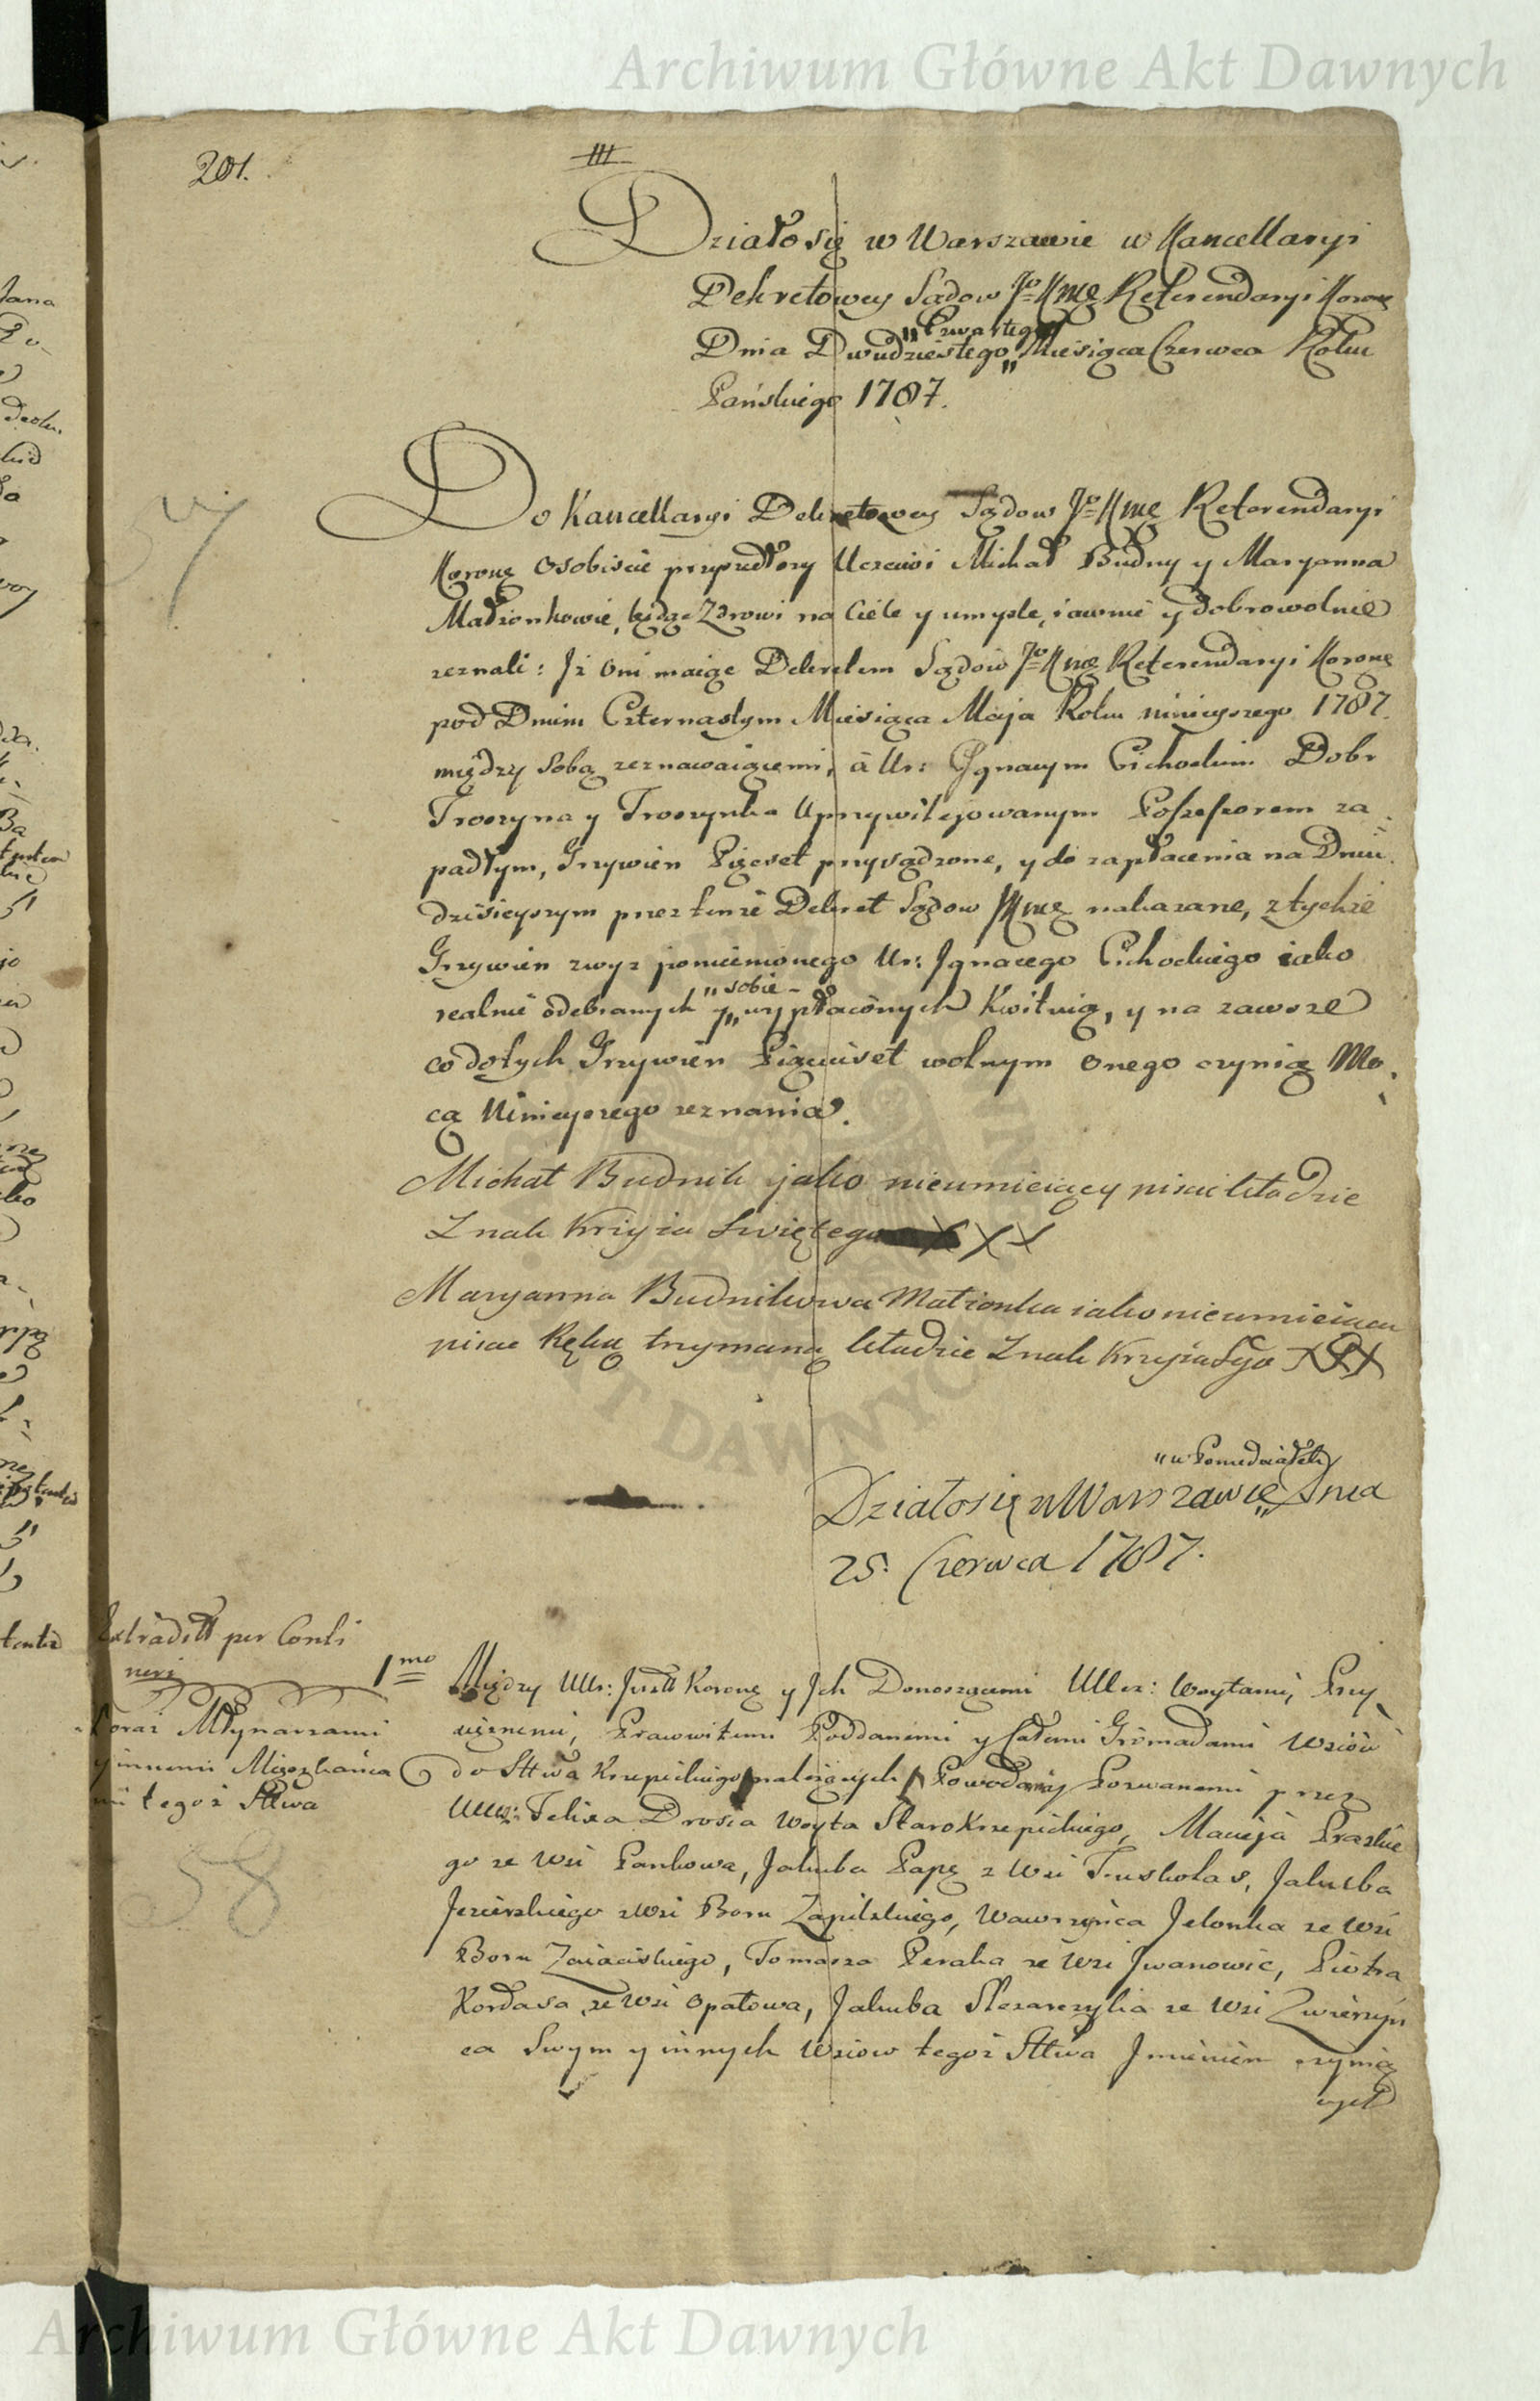 Archiwum Główne Akt Dawnych
201.
III
Działo się w Warszawie w Kancellaryi
Dekretowey Sądow Jo Kmę Referendaryi Koronę
„Czwartego
Dnia Dwudziestego„ Miesiąca Czerwca Roku
Pańskiego 1787.
Do Kancellaryi Dekretowey Sądow Jo Kmę Referendaryi
Koronę osobiscie przyszedłszy Uczciwi Michał Budny y Maryanna
Małżonkowie, będąc Zdrowi na Ciele y umysle, iawnie y dobrowolnie
zeznali: Jż oni maiąc Dekretem Sądow Jo Kmę Referendaryi Koronę
pod Dniem Czternastym Miesiąca Maja Roku ninieyszego 1787.
między sobą zeznawaiącemi, a Ur: Jgnacym Cichockim Dobr
Troszyna y Troszynka Uprzywilejowanym Possessorem za
padłym, Grzywien Pięcset przysądzone, y do zapłacenia na Dniu
dzisieyszym przez tenże Dekret Sądow JKmę nakazane, z tychże
Grzywien zwyz pomienionego Ur: Jgnacego Cichockiego iako
„sobie
realnie odebranych y„ wypłaconych Kwituią, y na zawsze
co do tych Grzywien Pięciuset wolnym onego czynią Mo
cą Ninieyszego zeznania.
Michał Budnik jako nieumieiący pisać kładzie
Znak Krzyża Swiętego XXX
Maryanna Budnikowa Małżonka iako nieumieiąca
pisac Ręką trzymaną kładzie Znak Krzyża Sgo XXX
„w Poniedziałek
Działo się w Warszawie„ Dnia
25. Czerwca 1787.
Extraditt per Conti
neri
1mo Między UUr: Jnstt Koronę y Jch Donoszącemi UUcz: Woytami, Przy
oraz Młynarzami
siężnemi, Prawowitemi Poddanemi y Całemi Gromadami Wsiow
y innemi Mieszkanca
do Sttwa Krzepickiego należących Powodamy Pozwanemi przez
mi tegoż Sttwa
UUcz: Felixa Drosia Woyta Starokrzepickiego, Macieja Praskie
go ze Wsi Pankowa, Jakuba Papę z Wsi Truskolas, Jakuba
58
Jezierskiego z Wsi Boru Zapilskiego, Wawrzyńca Jelonka ze Wsi
Boru Zaiacinskiego, Tomasza Peraka ze Wsi Jwanowic, Piotra
Kordasa ze Wsi Opatowa, Jakuba Slezarczyka ze Wsi Zwierzyń
ca Swym y innych Wsiow tegoż Sttwa Jmieniem czynią
cych
Archiwum Główne Akt Dawnych